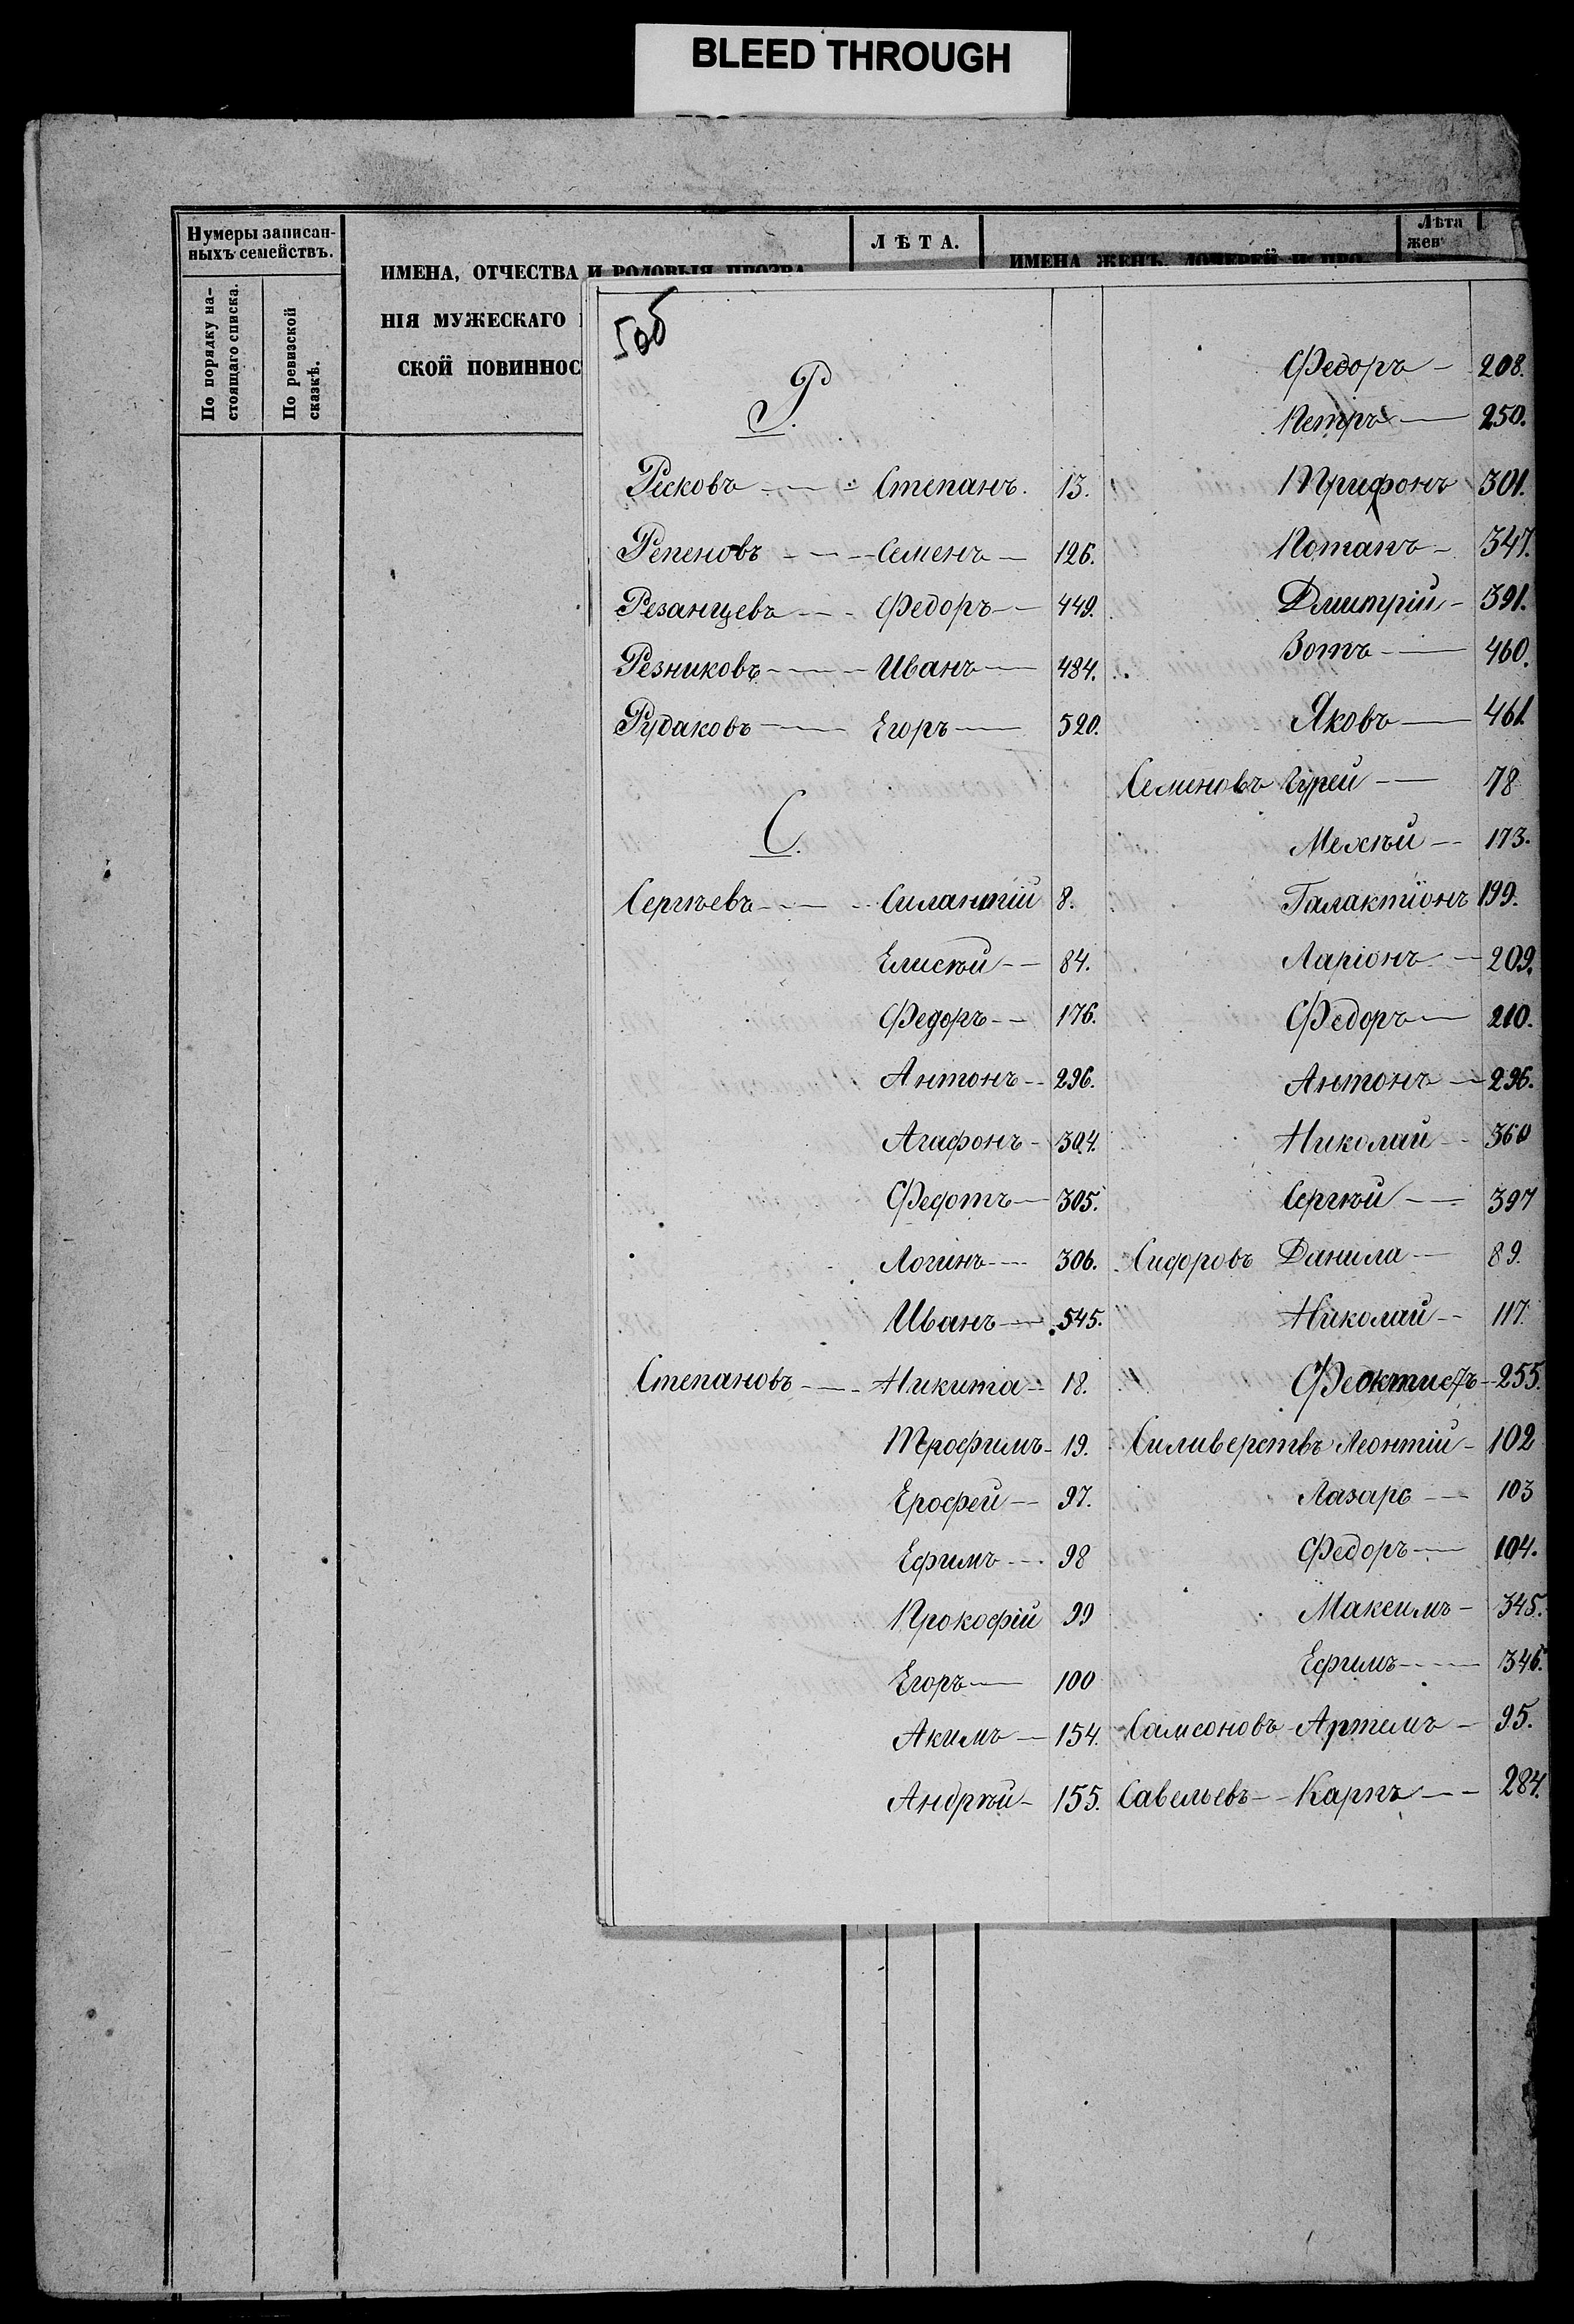 BLEED THROUGH
Нумеры записан-
ныхъ семействъ.
По порядку на-
стоящаго списка.
По ревизской
сказкѣ.
ИМЕНА, ОТЧЕСТВА И РОДОВЫЯ ПРОЗВА
НІЯ МУЖЕСКАГО
СКОЙ ПОВИННОС
ЛѢТА.
ИМЕНА ЖЕНЪ, ДОЧЕРЕЙ И ПРО
Лѣта
жен
Р.
Рѣсковъ Степанъ. 13.
Репеновъ Семенъ 126.
Резанцевъ Федоръ 449.
Резниковъ Иванъ 484.
Рудаковъ Егоръ 520.
С.
Сергѣевъ Силантій 8.
Елисѣй 84.
Федоръ 176.
Антонъ 296.
Агафонъ 304.
Федотъ 305.
Логинъ 306.
Иванъ 545.
Степановъ Никита 18.
Трофимъ 19.
Ерофей 97.
Ефимъ 98
Прокофій 99
Егоръ 100
Акимъ 154.
Андрѣй 155.
Федоръ 208.
Петръ 250.
Трифонъ 301.
Потапъ 347.
Дмитрій 391.
Зотъ 460.
Яковъ 461.
Семеновъ Гурей 78
Мехѣй 173.
Галактіонъ 199.
Ларіонъ 209.
Федоръ 210.
Антонъ 296.
Николай 360
Сергѣй 397
Сидоровъ Данила 89.
Николай 117.
Феоктистъ 255.
Силиверствъ Леонтій 102
Лазарь 103
Федоръ 104.
Максимъ 345.
Ефимъ 346.
Самсоновъ Артемъ 95.
Савельевъ Карпъ 284.